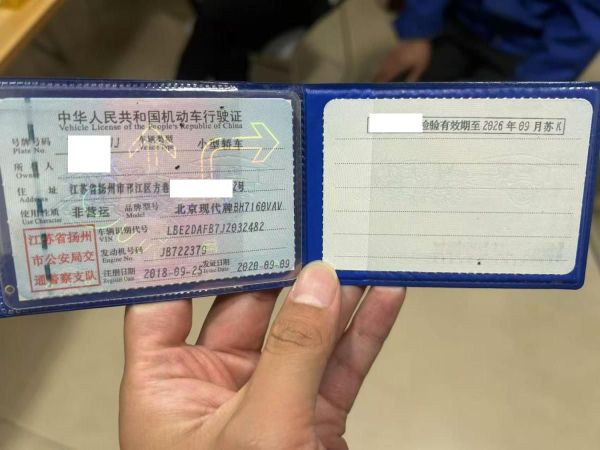 中华人民共和国机动车行驶证
Vehicle License of the People's Republic of China
号牌号码 J 车辆类型 小型轿车
Plate No. Vehicle Type
所有人
Owner
住址 江苏省扬州市邗江区方巷 2号
Address
使用性质 非营运 品牌型号 北京现代牌BH7160VAV
Use Character Model
江苏省扬州市公安局交通警察支队
车辆识别代号 LBEZDAFB7JZ032482
VIN
发动机号码 JB722379
Engine No.
注册日期 2018-09-25 发证日期 2020-09-09
Register Date Issue Date
检验有效期至2026年09月苏K